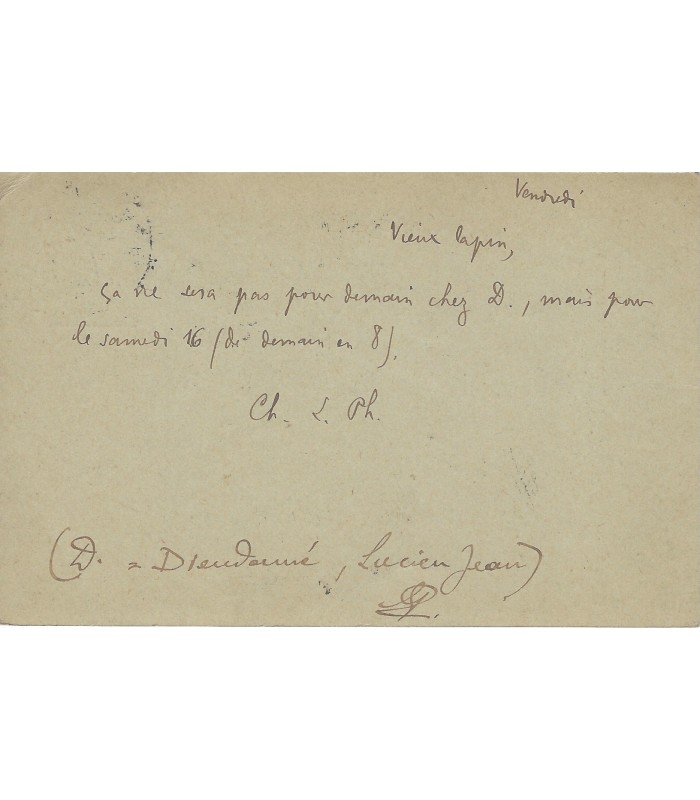 Vendredi
Vieux lapin,
ça ne sera pas pour demain chez D., mais pour
le samedi 16 (de demain en 8).
Ch. L. Ph.
(D. = Dieudonné, Lucien Jean)